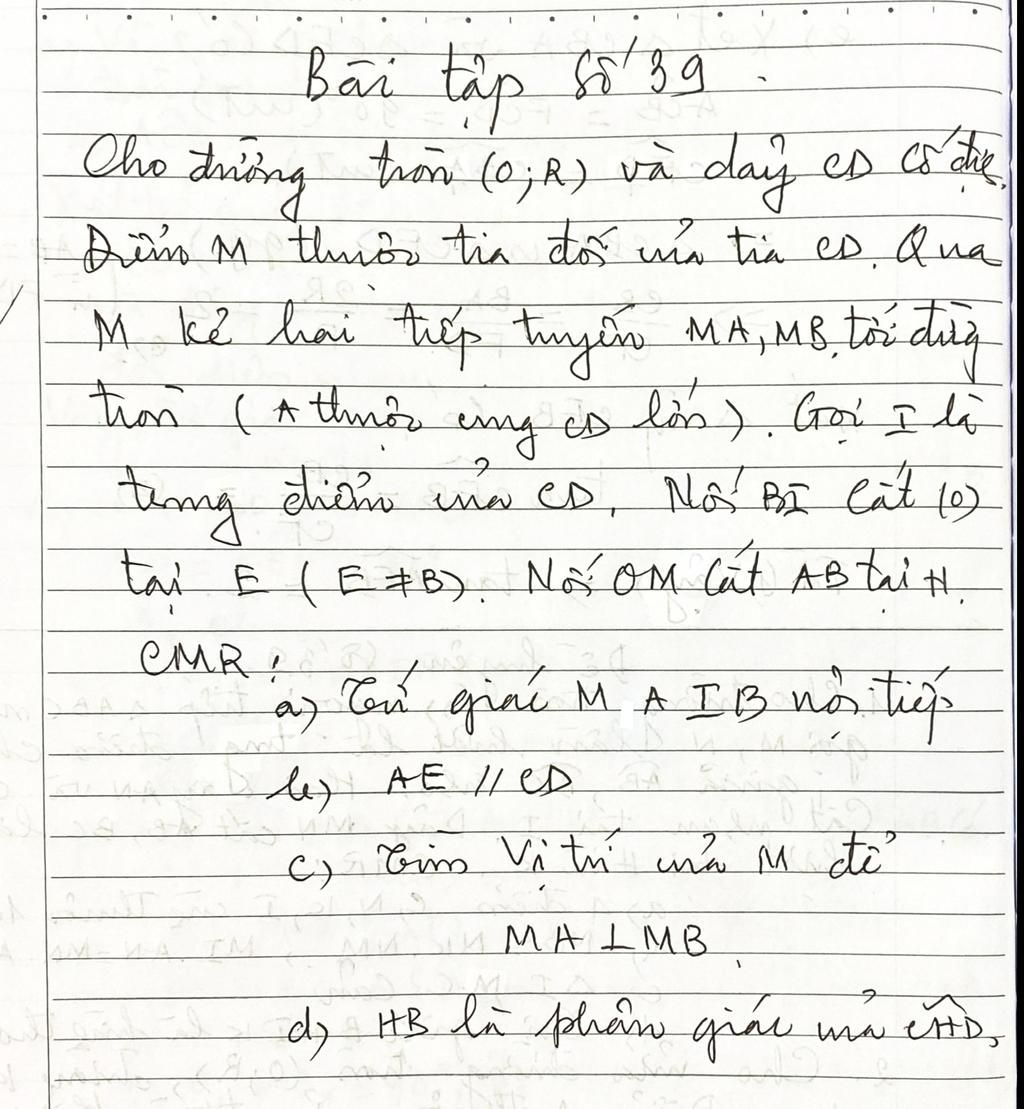 Bài tập số 39.
Cho đường tròn (O;R) và dây CD cố định.
Điểm M thuộc tia đối của tia CD. Qua
M kẻ hai tiếp tuyến MA, MB tới đường
tròn (A thuộc cung CD lớn). Gọi I là
trung điểm của CD. Nối BI cắt (O)
tại E (E ≠ B). Nối OM cắt AB tại H.
CMR:
a) Tứ giác MAIB nội tiếp
b) AE // CD
c) Tìm vị trí của M để
MA ⊥ MB
d) HB là phân giác của ĈHD.